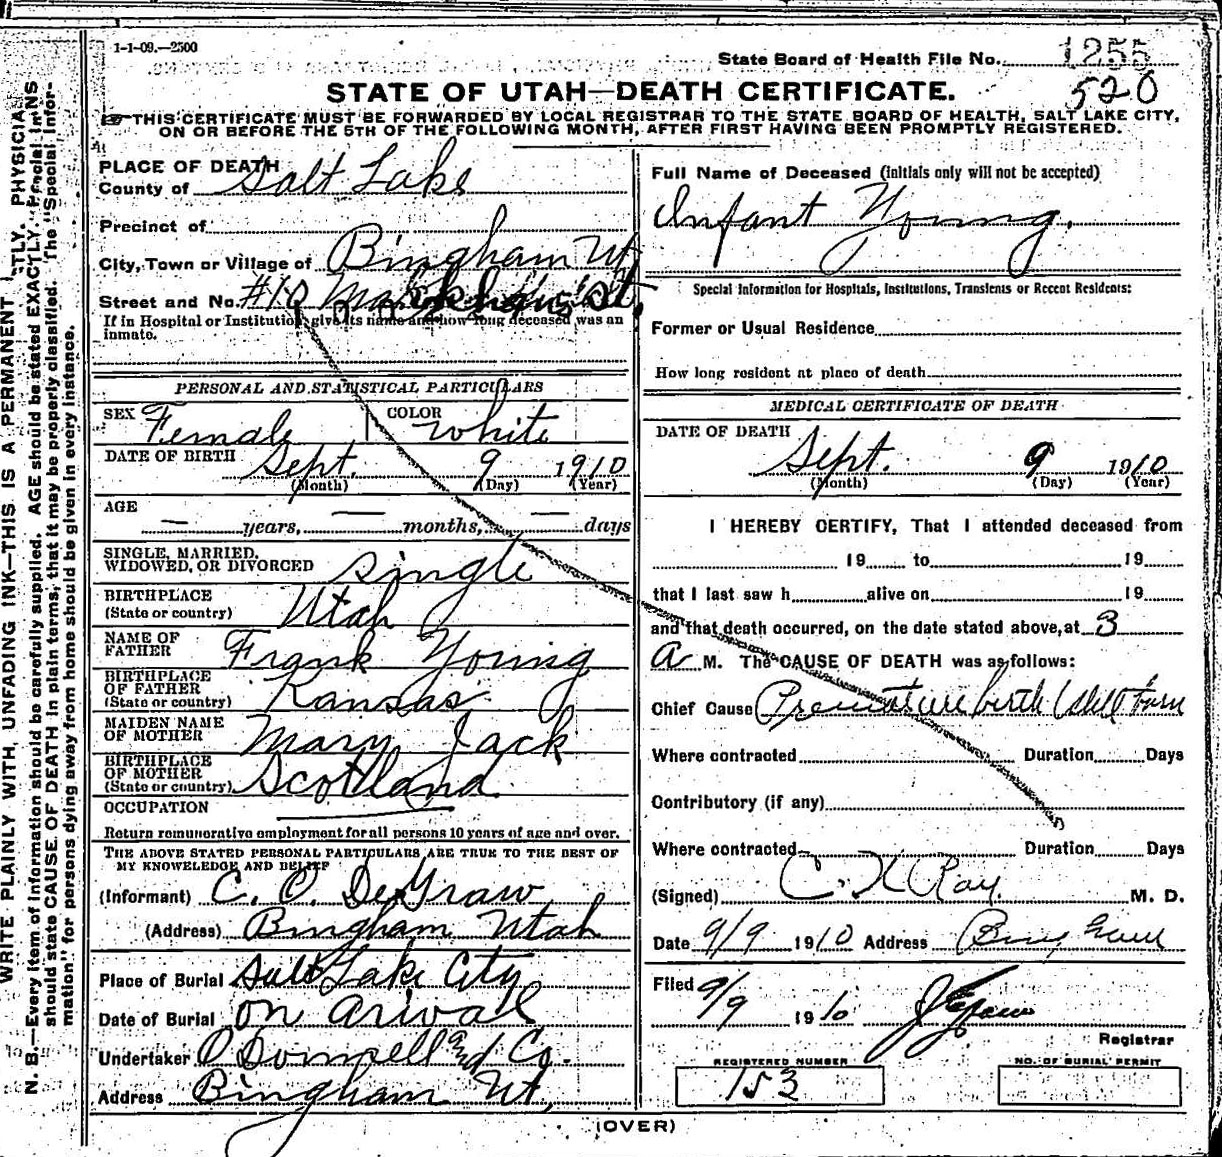 1-1-09.—2500
State Board of Health File No. 1255
520
STATE OF UTAH—DEATH CERTIFICATE.
THIS CERTIFICATE MUST BE FORWARDED BY LOCAL REGISTRAR TO THE STATE BOARD OF HEALTH, SALT LAKE CITY,
ON OR BEFORE THE 5TH OF THE FOLLOWING MONTH, AFTER FIRST HAVING BEEN PROMPTLY REGISTERED.
PLACE OF DEATH
County of Salt Lake
Precinct of
City, Town or Village of Bingham Ut
Street and No. #10 St.
If in Hospital or Institution, give its name and how long deceased was an
inmate.
PERSONAL AND STATISTICAL PARTICULARS
SEX Female COLOR White
DATE OF BIRTH Sept. 9 1910
(Month) (Day) (Year)
AGE
— years, — months, — days
SINGLE, MARRIED,
WIDOWED, OR DIVORCED single
BIRTHPLACE
(State or country) Utah
NAME OF
FATHER Frank Young
BIRTHPLACE
OF FATHER
(State or country) Kansas
MAIDEN NAME
OF MOTHER Mary Jack
BIRTHPLACE
OF MOTHER
(State or country) Scotland
OCCUPATION
Return remunerative employment for all persons 10 years of age and over.
THE ABOVE STATED PERSONAL PARTICULARS ARE TRUE TO THE BEST OF
MY KNOWELEDGE AND BELIEF
(Informant) C. O. DeGraw
(Address) Bingham Utah
Place of Burial Salt Lake City
Date of Burial on arival
Undertaker O Donnell and Co.
Address Bingham Ut,
Full Name of Deceased (initials only will not be accepted)
Infant Young.
Special Information for Hospitals, Institutions, Transients or Recent Residents:
Former or Usual Residence
How long resident at place of death
MEDICAL CERTIFICATE OF DEATH
DATE OF DEATH
Sept. 9 1910
(Month) (Day) (Year)
I HEREBY CERTIFY, That I attended deceased from
19 to 19
that I last saw h alive on 19
and that death occurred, on the date stated above, at 3
A M. The CAUSE OF DEATH was as follows:
Chief Cause Premature birth (Still born
Where contracted Duration Days
Contributory (if any)
Where contracted Duration Days
(Signed) C. Ray. M. D.
Date 9/9 1910 Address
Filed 9/9 1910
Registrar
REGISTERED NUMBER
153
NO. OF BURIAL PERMIT
(OVER)
WRITE PLAINLY WITH, UNFADING INK—THIS IS A PERMANENT
N. B.—Every item of information should be carefully supplied. AGE should be stated EXACTLY. PHYSICIANS
should state CAUSE OF DEATH in plain terms, that it may be properly classified. The "Special Infor-
mation" for persons dying away from home should be given in every instance.